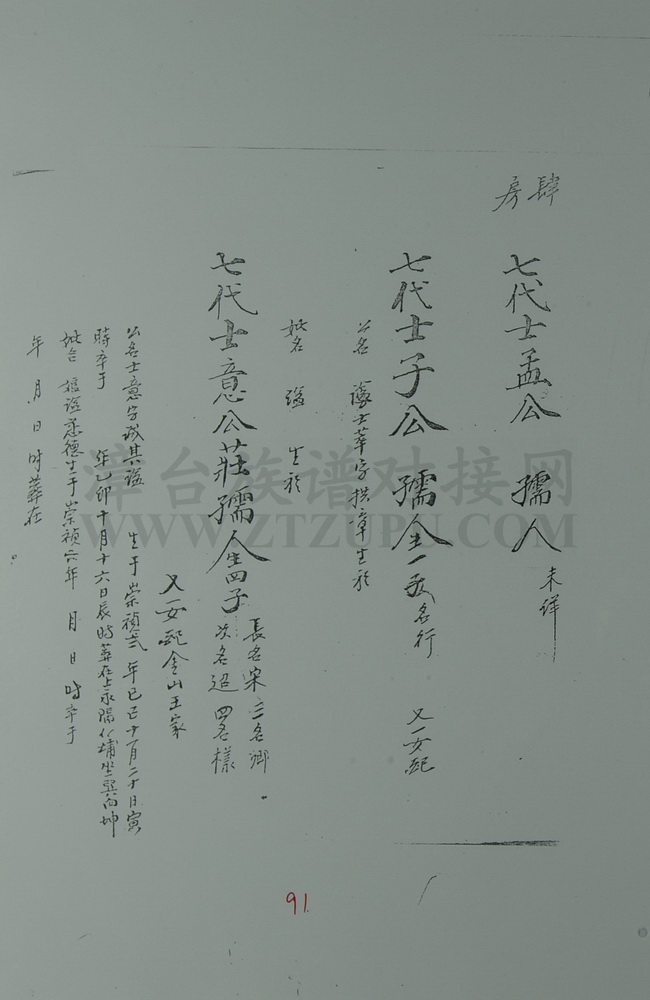 肆房
七代士孟公 孺人 未詳
七代士子公 孺人生一子名行 又一女配
公名 諱士 字 章生於
妣名 謚 生於
七代士意公莊孺人生四子 長名宋 三名卿
次名迢 四名樣
又一女配金山王家
公名士意字 其謚 生于崇禎貳年己巳十月二十日寅
時卒于 年乙卯十月十六日辰時葬在上永隆 埔坐巽向坤
妣 謚慈德生于崇禎六年 月 日 時卒于
年 月 日 时葬在
91
漳台族谱对接网
WWW.ZTZUPU.COM